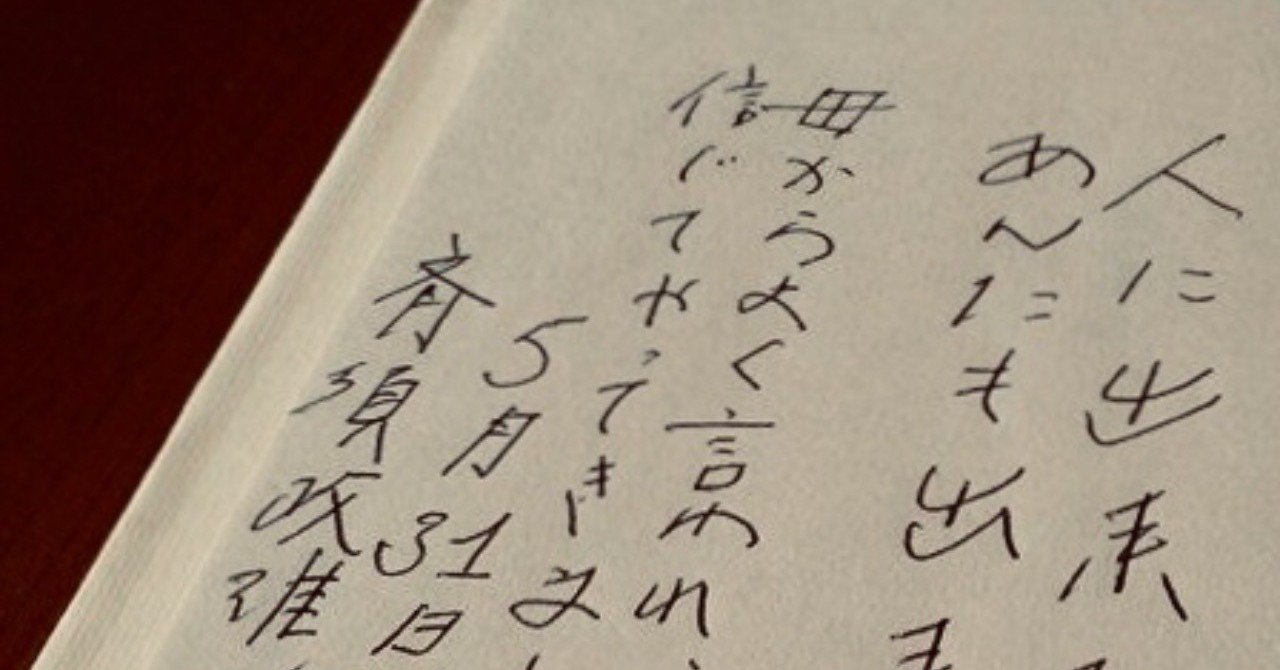 人に出来
あんにも出
母からよく言われ
信じてやってきま
5月31日
斉須政雄